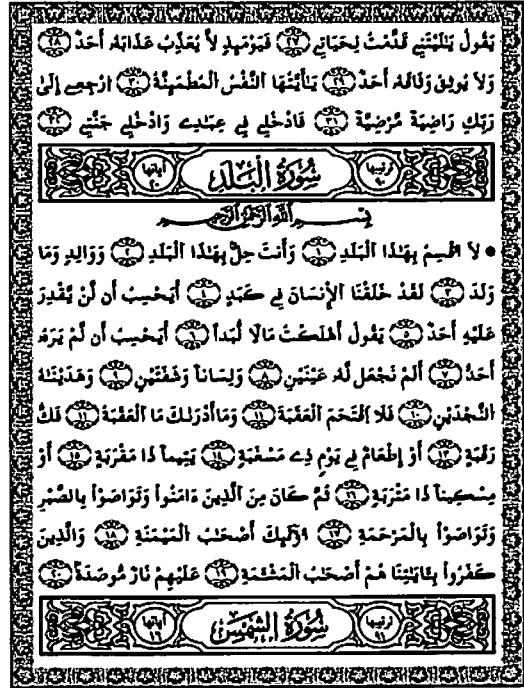 يَقُولُ يَٰلَيْتَنِے قَدَّمْتُ لِحَيَاتِےۖ ٢٧ فَيَوْمَئِذٖ لَّا يُعَذِّبُ عَذَابَهُۥٓ أَحَدٞ ٢٨
وَلَا يُوثِقُ وَثَاقَهُۥٓ أَحَدٞ ٢٩ يَٰٓأَيَّتُهَا اَ۬لنَّفْسُ اُ۬لْمُطْمَئِنَّةُ ٣٠ اُ۪رْجِعِےٓ إِلَىٰ
رَبِّكِ رَاضِيَةٗ مَّرْضِيَّةٗ ٣١ فَادْخُلِے فِے عِبَٰدِے وَادْخُلِے جَنَّتِے ٣٢
ترتيبها ٩٠ سُورَةُ الْبَلَدِ آياتها ٢٠
بِسْمِ اللَّهِ الرَّحْمَٰنِ الرَّحِيمِ
لَآ أُقْسِمُ بِهَٰذَا اَ۬لْبَلَدِ ١ وَأَنتَ حِلُّۢ بِهَٰذَا اَ۬لْبَلَدِ ٢ وَوَالِدٖ وَمَا
وَلَدَ ٣ لَقَدْ خَلَقْنَا اَ۬لْإِنسَٰنَ فِے كَبَدٍ ٤ أَيَحْسِبُ أَن لَّنْ يَّقْدِرَ
عَلَيْهِ أَحَدٞ ٥ يَقُولُ أَهْلَكْتُ مَالٗا لُّبَداً ٦ أَيَحْسِبُ أَن لَّمْ يَرَهُۥٓ
أَحَدٌ ٧ أَلَمْ نَجْعَل لَّهُۥ عَيْنَيْنِ ٨ وَلِسَاناٗ وَشَفَتَيْنِ ٩ وَهَدَيْنَٰهُ
اُ۬لنَّجْدَيْنِ ١٠ فَلَا اَ۪قْتَحَمَ اَ۬لْعَقَبَةَ ١١ وَمَآ أَدْر۪ىٰكَ مَا اَ۬لْعَقَبَةُ ١٢ فَكُّ
رَقَبَةٍ ١٣ أَوْ إِطْعَٰمٞ فِے يَوْمٖ ذِے مَسْغَبَةٖ ١٤ يَتِيماٗ ذَا مَقْرَبَةٍ ١٥ أَوْ
مِسْكِيناٗ ذَا مَتْرَبَةٖ ١٦ ثُمَّ كَانَ مِنَ اَ۬لذِينَ ءَامَنُواْ وَتَوَاصَوْاْ بِالصَّبْرِ
وَتَوَاصَوْاْ بِالْمَرْحَمَةِ ١٧ أُوْلَٰٓئِكَ أَصْحَٰبُ اُ۬لْمَيْمَنَةِ ١٨ وَالذِينَ
كَفَرُواْ بِـَٔايَٰتِنَا هُمُۥٓ أَصْحَٰبُ اُ۬لْمَشْـَٔمَةِ ١٩ عَلَيْهِمْ نَارٞ مُّوصَدَةٞ ٢٠
ترتيبها ٩١ سُورَةُ الشَّمْسِ آياتها ١٦